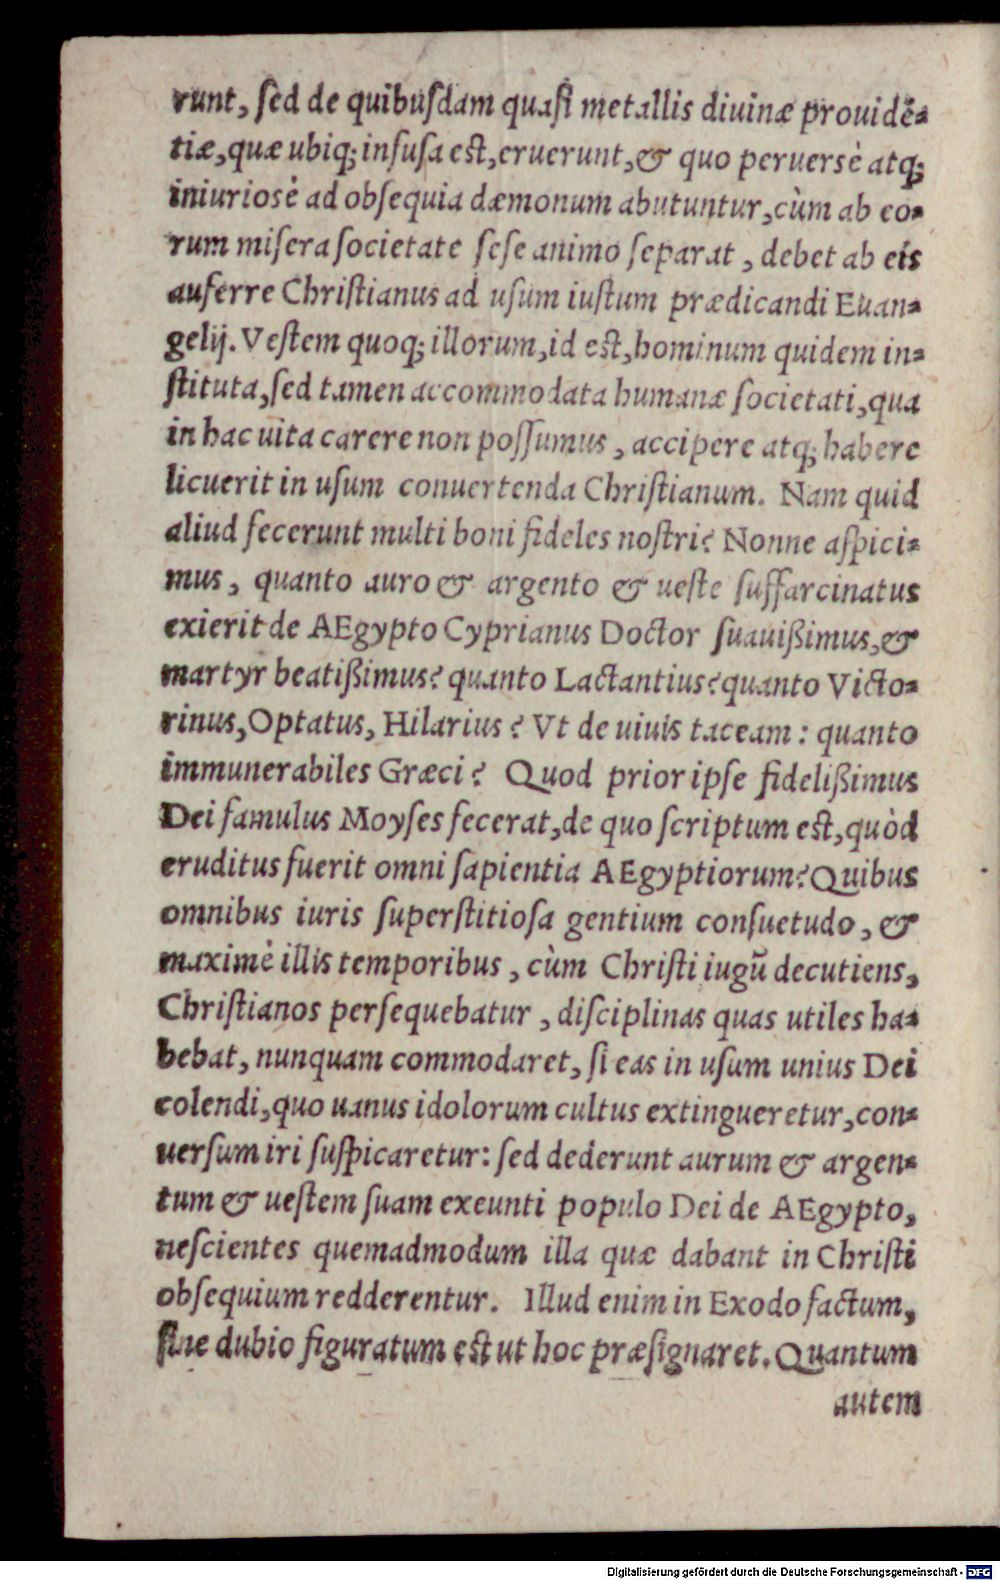 runt, ſed de quibuſdam quaſi metallis diuinæ prouidē⸗
tiæ,quæ ubiq; infuſa eſt,eruerunt,& quo peruersè atq;
iniuriosè ad obſequia dæmonum abutuntur,cùm ab eo⸗
rum miſera ſocietate ſeſe animo ſeparat , debet ab eis
auferre Chriſtianus ad uſum iuſtum prædicandi Euan⸗
gelij. Veſtem quoq; illorum,id eſt,hominum quidem in⸗
ſtituta,ſed tamen accommodata humanæ ſocietati,qua
in hac uita carere non poſſumus , accipere atq; habere
licuerit in uſum conuertenda Chriſtianum. Nam quid
aliud fecerunt multi boni fideles noſtri? Nonne aſpici⸗
mus , quanto auro & argento & ueſte ſuffarcinatus
exierit de AEgypto Cyprianus Doctor ſuauißimus,&
martyr beatißimus? quanto Lactantius? quanto Victo⸗
rinus,Optatus, Hilarius ? Vt de uiuis taceam : quanto
immunerabiles Græci? Quod prior ipſe fidelißimus
Dei famulus Moyſes fecerat,de quo ſcriptum eſt,quòd
eruditus fuerit omni ſapientia AEgyptiorum? Quibus
omnibus iuris ſuperſtitioſa gentium conſuetudo , &
maximè illis temporibus , cùm Chriſti iugū decutiens,
Chriſtianos perſequebatur , diſciplinas quas utiles ha⸗
bebat, nunquam commodaret, ſi eas in uſum unius Dei
colendi,quo uanus idolorum cultus extingueretur,con⸗
uerſum iri ſuſpicaretur: ſed dederunt aurum & argen⸗
tum & ueſtem ſuam exeunti populo Dei de AEgypto,
neſcientes quemadmodum illa quæ dabant in Chriſti
obſequium redderentur. Illud enim in Exodo factum,
ſine dubio figuratum eſt ut hoc præſignaret. Quantum
autem
Digitalisierung gefördert durch die Deutsche Forschungsgemeinschaft - DFG